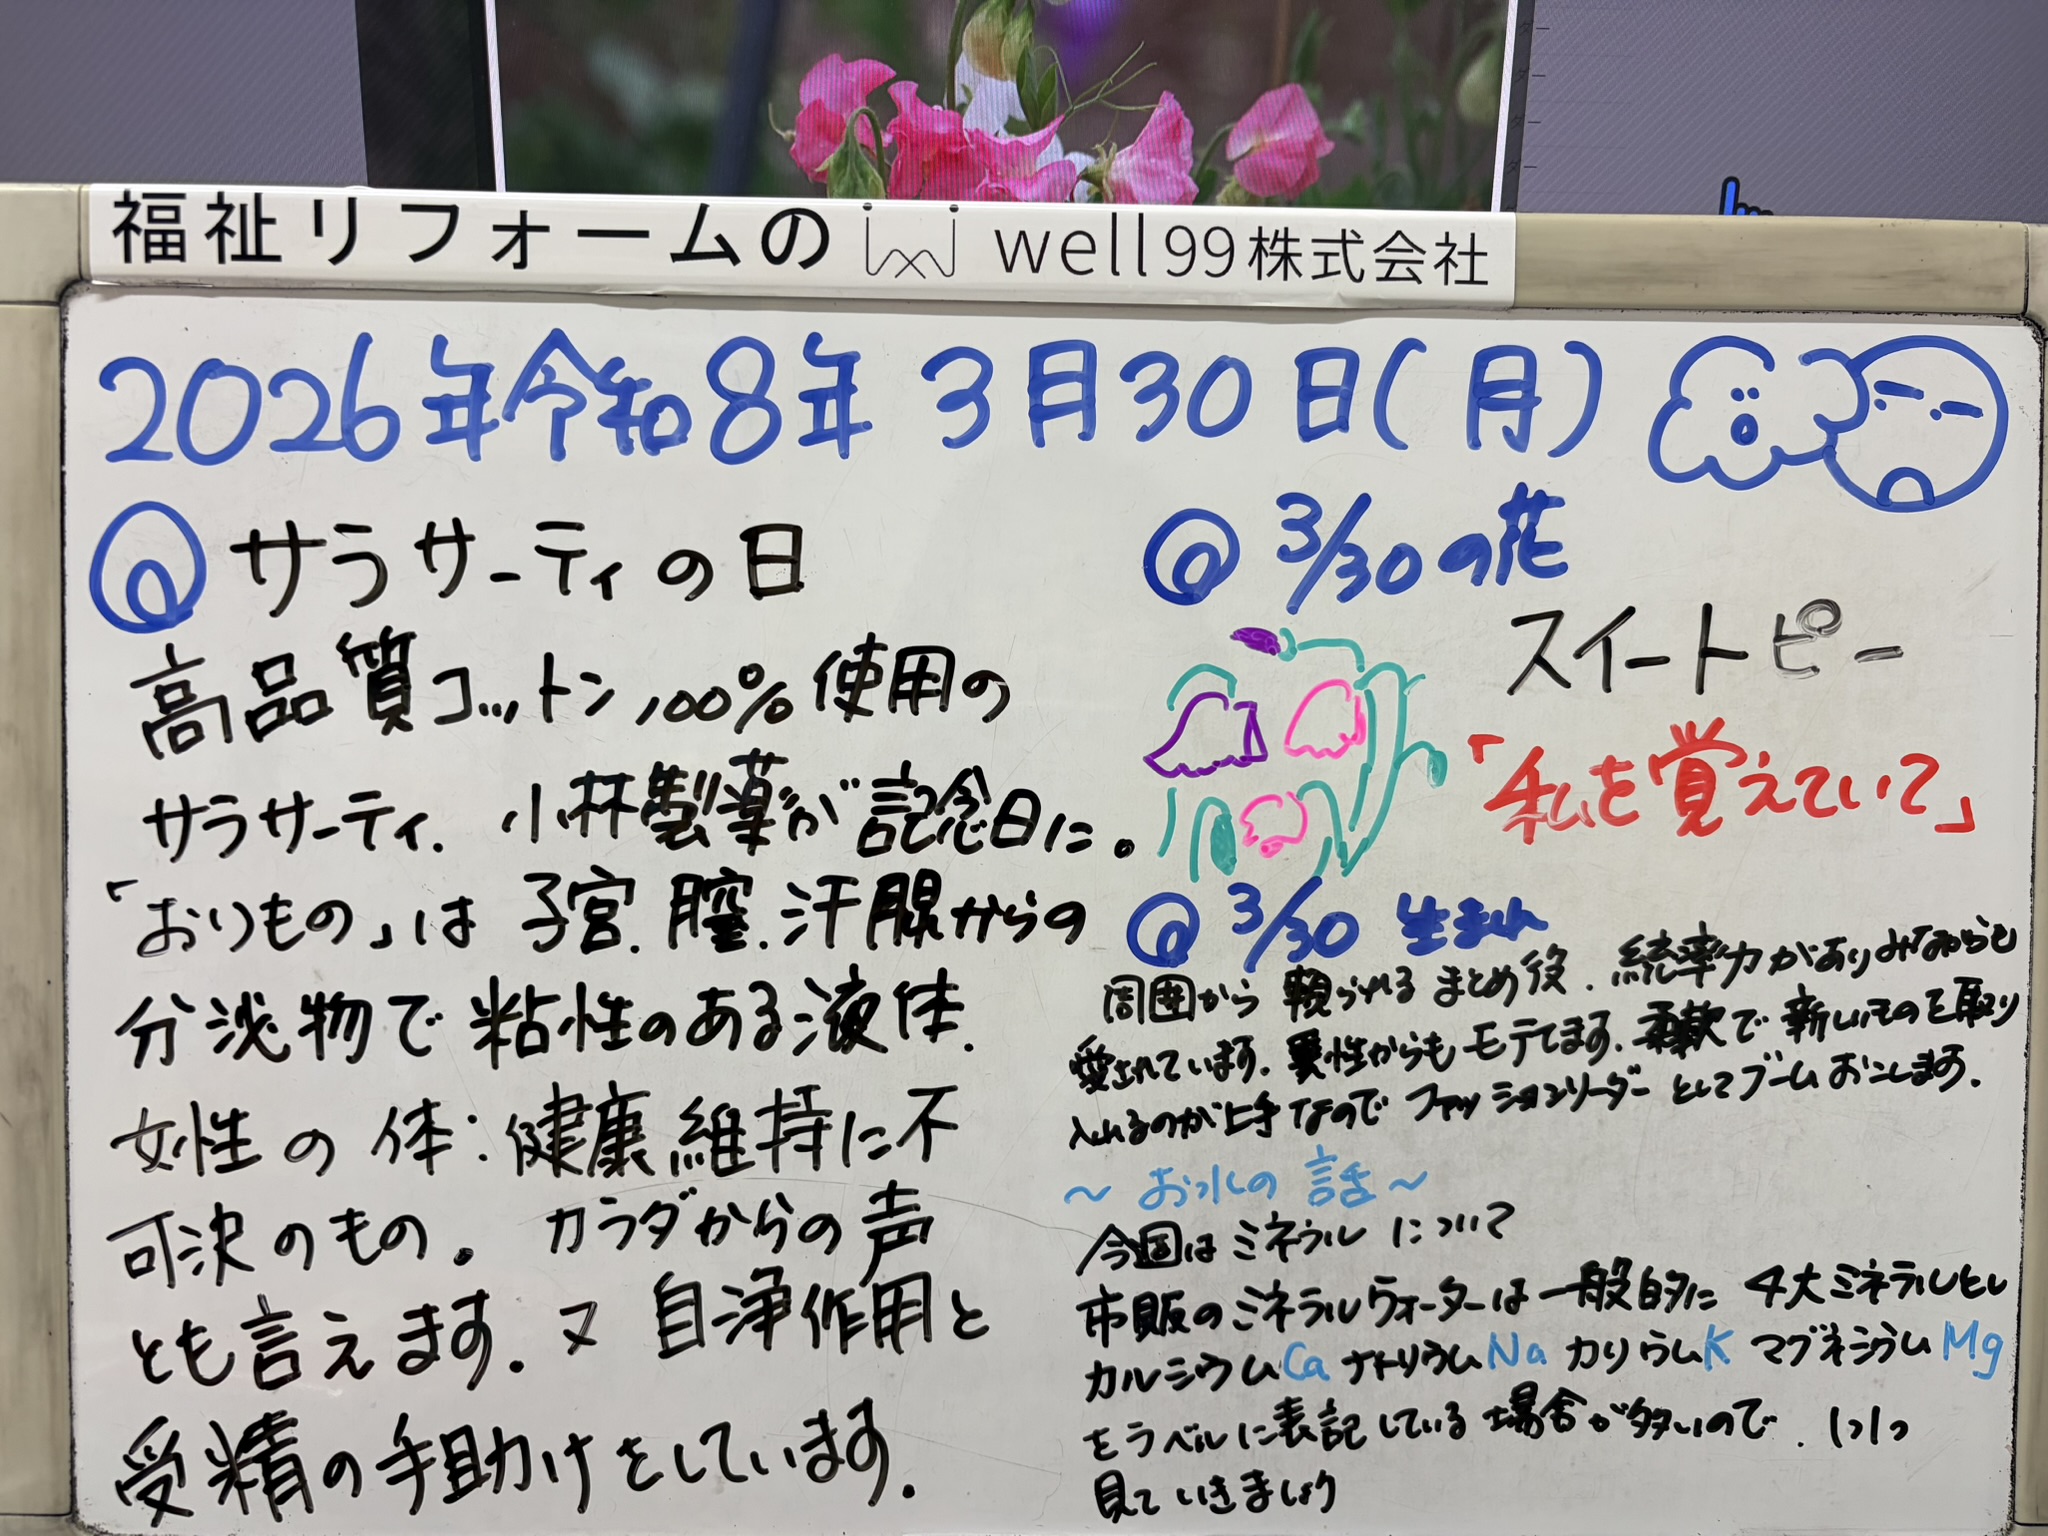 福祉リフォームの well99株式会社
2026年令和8年 3月30日(月)
サラサーティの日
高品質コットン100%使用の
サラサーティ. 小林製薬が記念日に。
「おりもの」は 子宮.膣.汗腺からの
分泌物で粘性のある液体.
女性の体:健康維持に不
可決のもの。カラダからの声
とも言えます.又 自浄作用と
受精の手助けをしています.
3/30の花
スイートピー
「私を覚えていて」
3/30 生まれ
周囲から 頼られる まとめ役.統率力がありみながらも
愛されています.異性からもモテてます.柔軟で新しいものを取り
入れるのが上手なので ファッションリーダーとしてブームおこします.
～お水の話～
今回はミネラルについて
市販のミネラルウォーターは一般的に 4大ミネラルとし
カルシウムCa ナトリウムNa カリウムK マグネシウムMg
をラベルに表記している場合が多いので. 1つ1つ
見ていきましょう